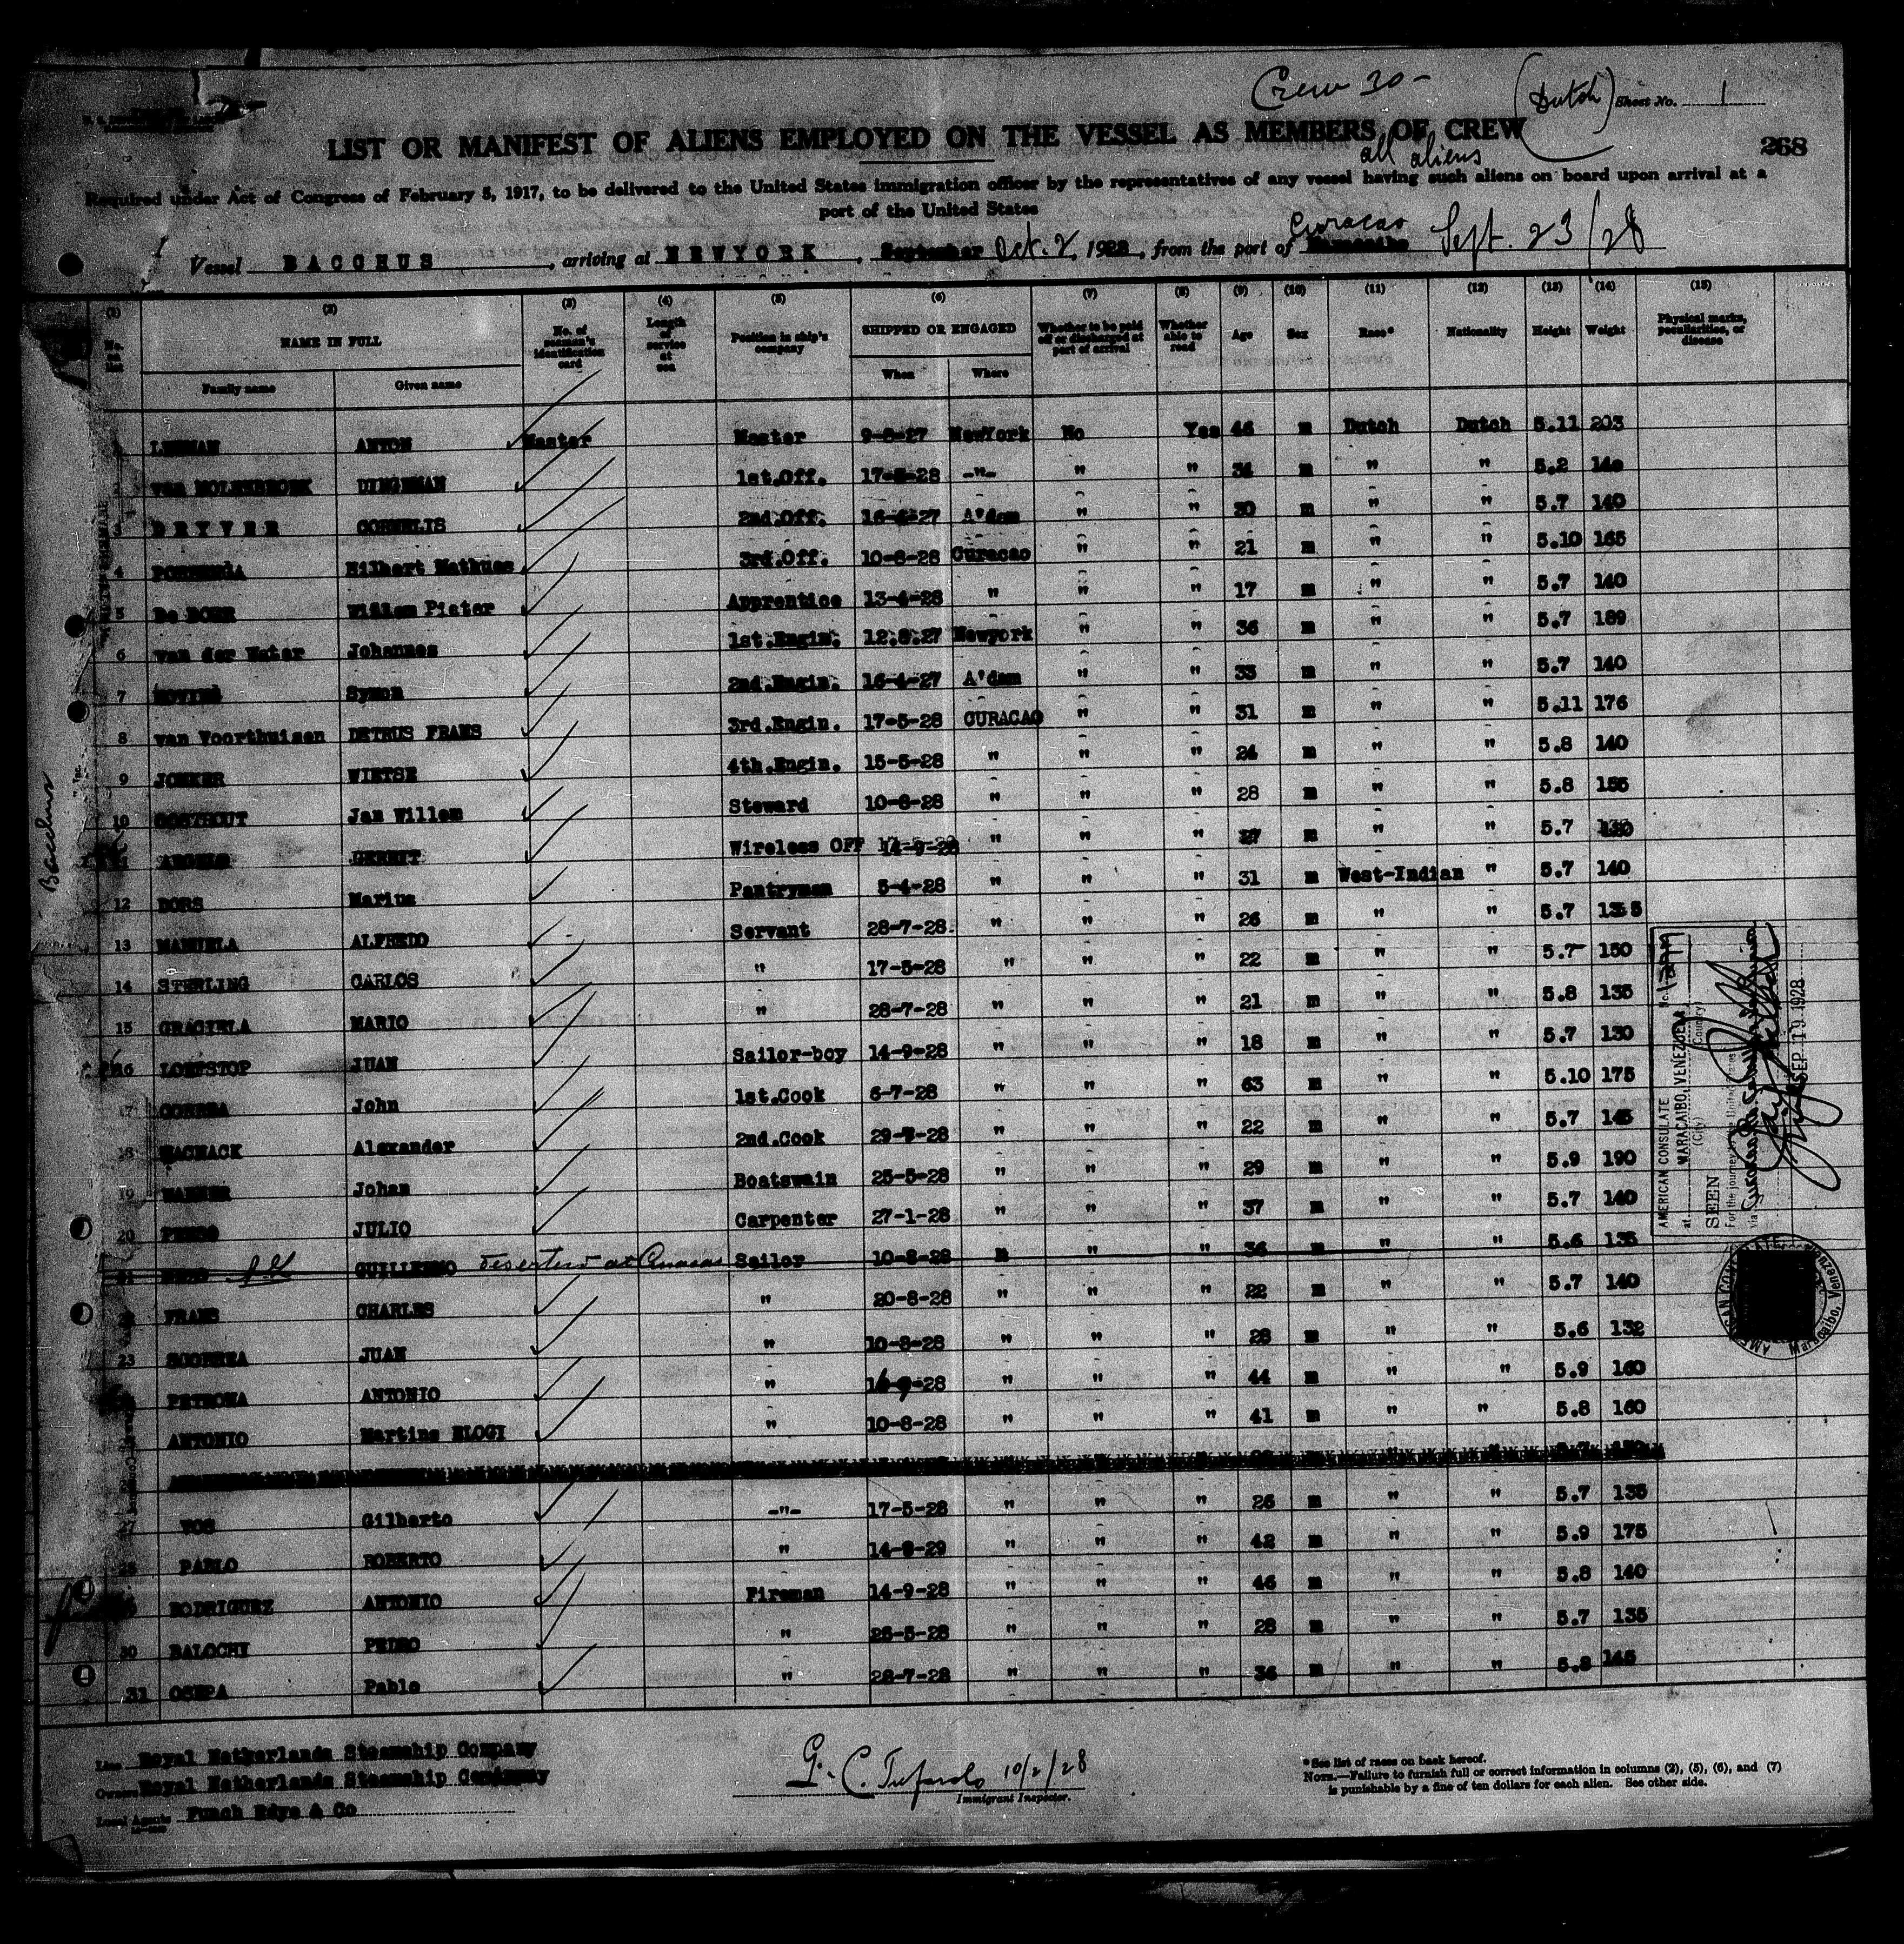 Crew 30-
(Dutch) Sheet No. 1
LIST OR MANIFEST OF ALIENS EMPLOYED ON THE VESSEL AS MEMBERS OF CREW
268
all aliens
Required under Act of Congress of February 5, 1917, to be delivered to the United States immigration officer by the representatives of any vessel having such aliens on board upon arrival at a
port of the United States
Vessel BACCHUS, arriving at NEWYORK, September Oct. 2, 1928, from the port of Curacao Sept. 23/28
(1) (2) (3) (4) (5) (6) (7) (8) (9) (10) (11) (12) (13) (14) (15)
No. on list NAME IN FULL No. of seaman's identification card Length of service at sea Position in ship's company SHIPPED OR ENGAGED Whether to be paid off or discharged at port of arrival Whether able to read Age Sex Race* Nationality Height Weight Physical marks, peculiarities, or disease
Family name Given name When Where
ANTON Master Master 9-8-27 NewYork No Yes 46 m Dutch Dutch 5.11 203
2 van MOLENBROEK DINGEMAN 1st.Off. -"- " " 34 m " " 5.2
3 DRYVER CORNELIS 2nd.Off. 16-4-27 A'dam " " 30 m " " 5.7 140
4 Hilbert Mathues 3rd.Off. 10-8-28 Curacao " " 21 m " " 5.10 165
5 De BOER Willem Pieter Apprentice 13-4-28 " " " 17 m " " 5.7 140
6 van der Water Johannes 1st.Engin. 12.8.27 Newyork " " 36 m " " 5.7 189
7 Symon 2nd.Engin. 16-4-27 A'dam " " 33 m " " 5.7 140
8 van Voorthuizen DETRUS FRANS 3rd.Engin. 17-5-28 CURACAO " " 31 m " " 5.11 176
9 JONKER WIETSE 4th.Engin. 15-5-28 " " " 24 m " " 5.8 140
10 OOSTHOUT Jan Willem Steward 10-8-28 " " " 28 m " " 5.8 155
11 GERRIT Wireless OFF 14-9-28 " " " 27 m " " 5.7
12 DORS Marius Pantryman 5-4-28 " " " 31 m West-Indian " 5.7 140
13 MANUELA ALFREDO Servant 28-7-28 " " " 26 m " " 5.7 135
14 STERLING CARLOS " 17-5-28 " " " 22 m " " 5.7 150
15 GRACIELA MARIO " 28-7-28 " " " 21 m " " 5.8 135
16 LOKTSTOP JUAN Sailor-boy 14-9-28 " " " 18 m " " 5.7 130
17 CORREA John 1st.Cook 6-7-28 " " " 63 m " " 5.10 175
18 MACNACK Alexander 2nd.Cook 29-7-28 " " " 22 m " " 5.7 145
19 Johan Boatswain 25-5-28 " " " 29 m " " 5.9 190
20 JULIO Carpenter 27-1-28 " " " 37 m " " 5.7 140
21 GUILLERMO Deserted at Curacao Sailor 10-8-28 " " " 36 m " " 5.6 135
22 FRANS CHARLES " 20-8-28 " " " 22 m " " 5.7 140
23 JUAN " 10-8-28 " " " 28 m " " 5.6 132
PETRONA ANTONIO " " " " 44 m " " 5.9 160
ANTONIO Martins ELOGI " 10-8-28 " " " 41 m " " 5.8 160
27 VOS Gilberto -"- 17-5-28 " " " 26 m " " 5.7 135
28 PABLO ROBERTO " 14-8-29 " " " 42 m " " 5.9 175
RODRIGUEZ ANTONIO Fireman 14-9-28 " " " 46 m " " 5.8 140
30 BALOCHI PEDRO " 25-5-28 " " " 28 m " " 5.7 135
31 OSEPA Pablo " 28-7-28 " " " 36 m " " 5.8 145
Bacchus
AMERICAN CONSULATE
at MARACAIBO, VENEZUELA
(City) (Country)
SEEN
For the journey to the United States
via
SEP 19 1928
AMERICAN CONSULATE Maracaibo, Venezuela
Line Royal Netherlands Steamship Company
Owners Royal Netherlands Steamship Company
Local Agents Funch Edye & Co
G. C. Tufarolo 10/2/28
Immigrant Inspector.
*See list of races on back hereof.
NOTE.—Failure to furnish full or correct information in columns (2), (5), (6), and (7)
is punishable by a fine of ten dollars for each alien. See other side.